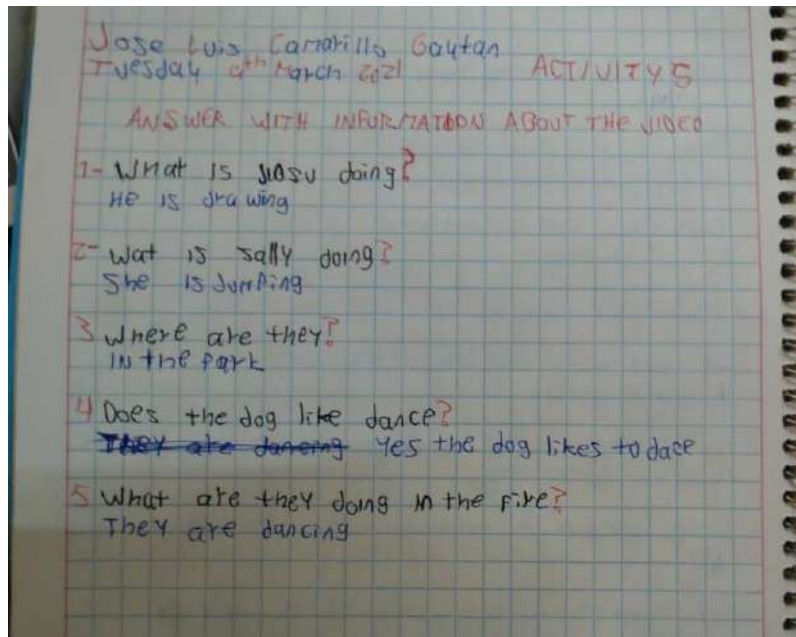 Jose Luis Camarillo Gaytan
Tuesday 9th March 2021 ACTIVITY 5
ANSWER WITH INFORMATION ABOUT THE VIDEO
1- What is JiOSU doing?
He is drawing
2- Wat is sally doing?
She is Jumping
3 Where are they?
IN the Park
4 Does the dog like dance?
They are dancing Yes the dog likes to dace
5 What are they doing in the fire?
They are dancing